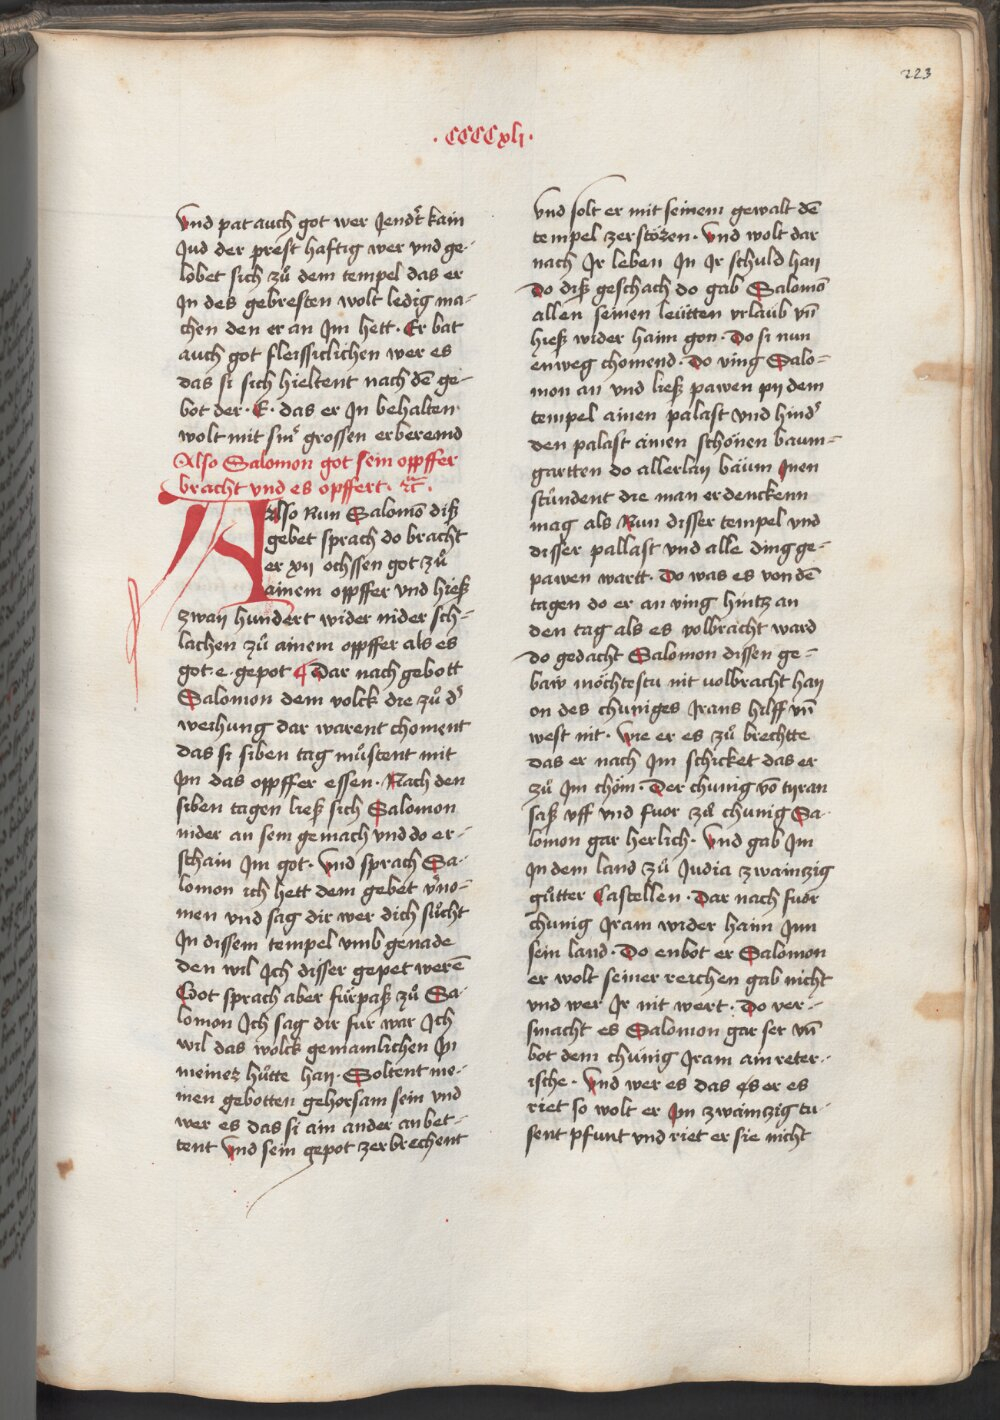 223
· CCCCxlj ·
Vnd pat auch got wer Jendẽt kain
Jud der prest haftig wer vnd ge-
lobet sich zů dem tempel das er
Jn des gebresten wolt ledig ma-
chen den er an Jm hett · Er bat
auch got fleissiclichen wer es
das si sich hieltent nach dẽ ge-
bot der · E · das er Jn behalten
wolt mit sinꝰ grossen erberemd
Also Salomon got sein opffer
bracht vnd es opffert · ⁊c̃ ·
Also Nun Salomõ diß
gebet sprach do bracht
er xij ochssen got zů
ainem opffer vnd hieß
zway hundert wider nider sch-
lachen zů ainem opffer als es
got · e · gepot Dar nach gebott
Salomon dem volck die zů dꝰ
weihung dar warent choment
das si siben tag můstent mit
Jm das opffer essen · Nach den
siben tagen ließ sich Salomon
nider an sein gemach vnd do er-
schain Jm got · Vnd sprach Sa-
lomon ich hett dem gebet vꝰno-
men vnd sag dir wer dich sůcht
Jn dissem tempel vmb genade
den wil Jch disser gepet werẽ
Got sprach aber fürpaß zů Sa-
lomon Jch sag dir fur war Jch
wil das wolck gemainlichen Jn
meiner hütte han · Soltent me-
inen gebotten gehorsam sein vnd
wer es das si ain ander anbet-
tent Vnd sein gepot zerbrechent
vnd solt er mit seinem gewalt dẽ
tempel zerstören · Vnd wolt dar
nach Jr leben Jn Jr schuld han
Do diß geschach do gab Salomõ
allen seinen leütten vrlaub vñ
hieß wider haim gon · Do si nun
enweg chomend · Do ving Salo-
mon an vnd ließ pawen pij dem
tempel ainen palast vnd hindꝰ
den palast ainen schönen baum-
gartten do allerlay bäum Jnen
stůndent die man erdenckenn
mag als Nun disser tempel vnd
disser pallast vnd alle ding ge-
pawen wartt · Do was es von dẽ
tagen do er an ving hintz an
den tag als es volbracht ward
do gedacht Salomon dissen ge-
baw möchtestu nit uolbracht han
on des chuniges Jrans hilff vñ
west nit · Wie er es zů brechtte
das er nach Jm schicket das er
zů Jm chöm · Der chunig võ tyran
saß vff vnd fuor zů chunig Sa-
lomon gar herlich · Vnd gab Jm
Jn dem land zů Judia zwainzig
gůtter Castellen · Dar nach fuor
chunig Jram wider haim Jnn
sein land · Do enbot er Salomon
er wolt seiner reichen gab nicht
vnd wer Jr nit wert · Do ver-
smacht es Salomon gar ser vñ
bot dem chunig Jram ain reter-
ische · Vnd wer es das es er es
riet so wolt er Jm zwainzig tu-
sent pfunt vnd riet er sie nicht